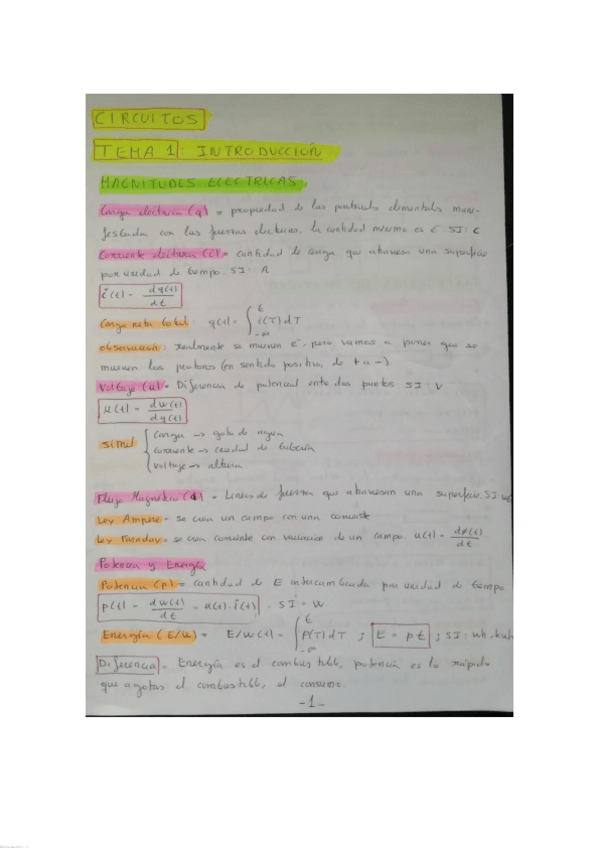 CIRCUITOS
TEMA 1: INTRODUCCIÓN
MAGNITUDES ELECTRICAS.
Carga electrica (q) = propiedad de las particulas elementales mani-
festada con las fuerzas electricas, la cantidad minima es é SI: C
Corriente electrica (i) = cantidad de carga que atraviesa una superficie
por unidad de tiempo. SI: A
i(t) = dq(t)/dt
Carga neta total: q(t) = ∫_{-∞}^{t} i(T) dT
Observación: realmente se mueven é, pero vamos a poner que se
mueven los protones (en sentido positivo, de + a -)
Voltaje (u) = Diferencia de potencial entre dos puntos SI: V
u(t) = dw(t)/dq(t)
Simil { Carga → gota de agua
corriente → caudal de tubería
voltaje → altura.
Flujo Magnetico (ϕ) = Lineas de fuerza que atraviesan una superficie. SI: Wb
Ley Ampere = se crea un campo con una corriente
Ley Faraday = se crea corriente con variación de un campo. u(t) = dϕ(t)/dt
Potencia y Energía
Potencia (p) = cantidad de E intercambiada por unidad de tiempo
p(t) = dw(t)/dt = u(t) · i(t) . SI = W
Energía (E/W) = E/W(t) = ∫_{-∞}^{t} P(T) dT ; E = p·t ; SI: wh, kwh
Diferencia = Energía es el combustible, potencia es lo rápido
que agotas el combustible, el consumo.
-1-